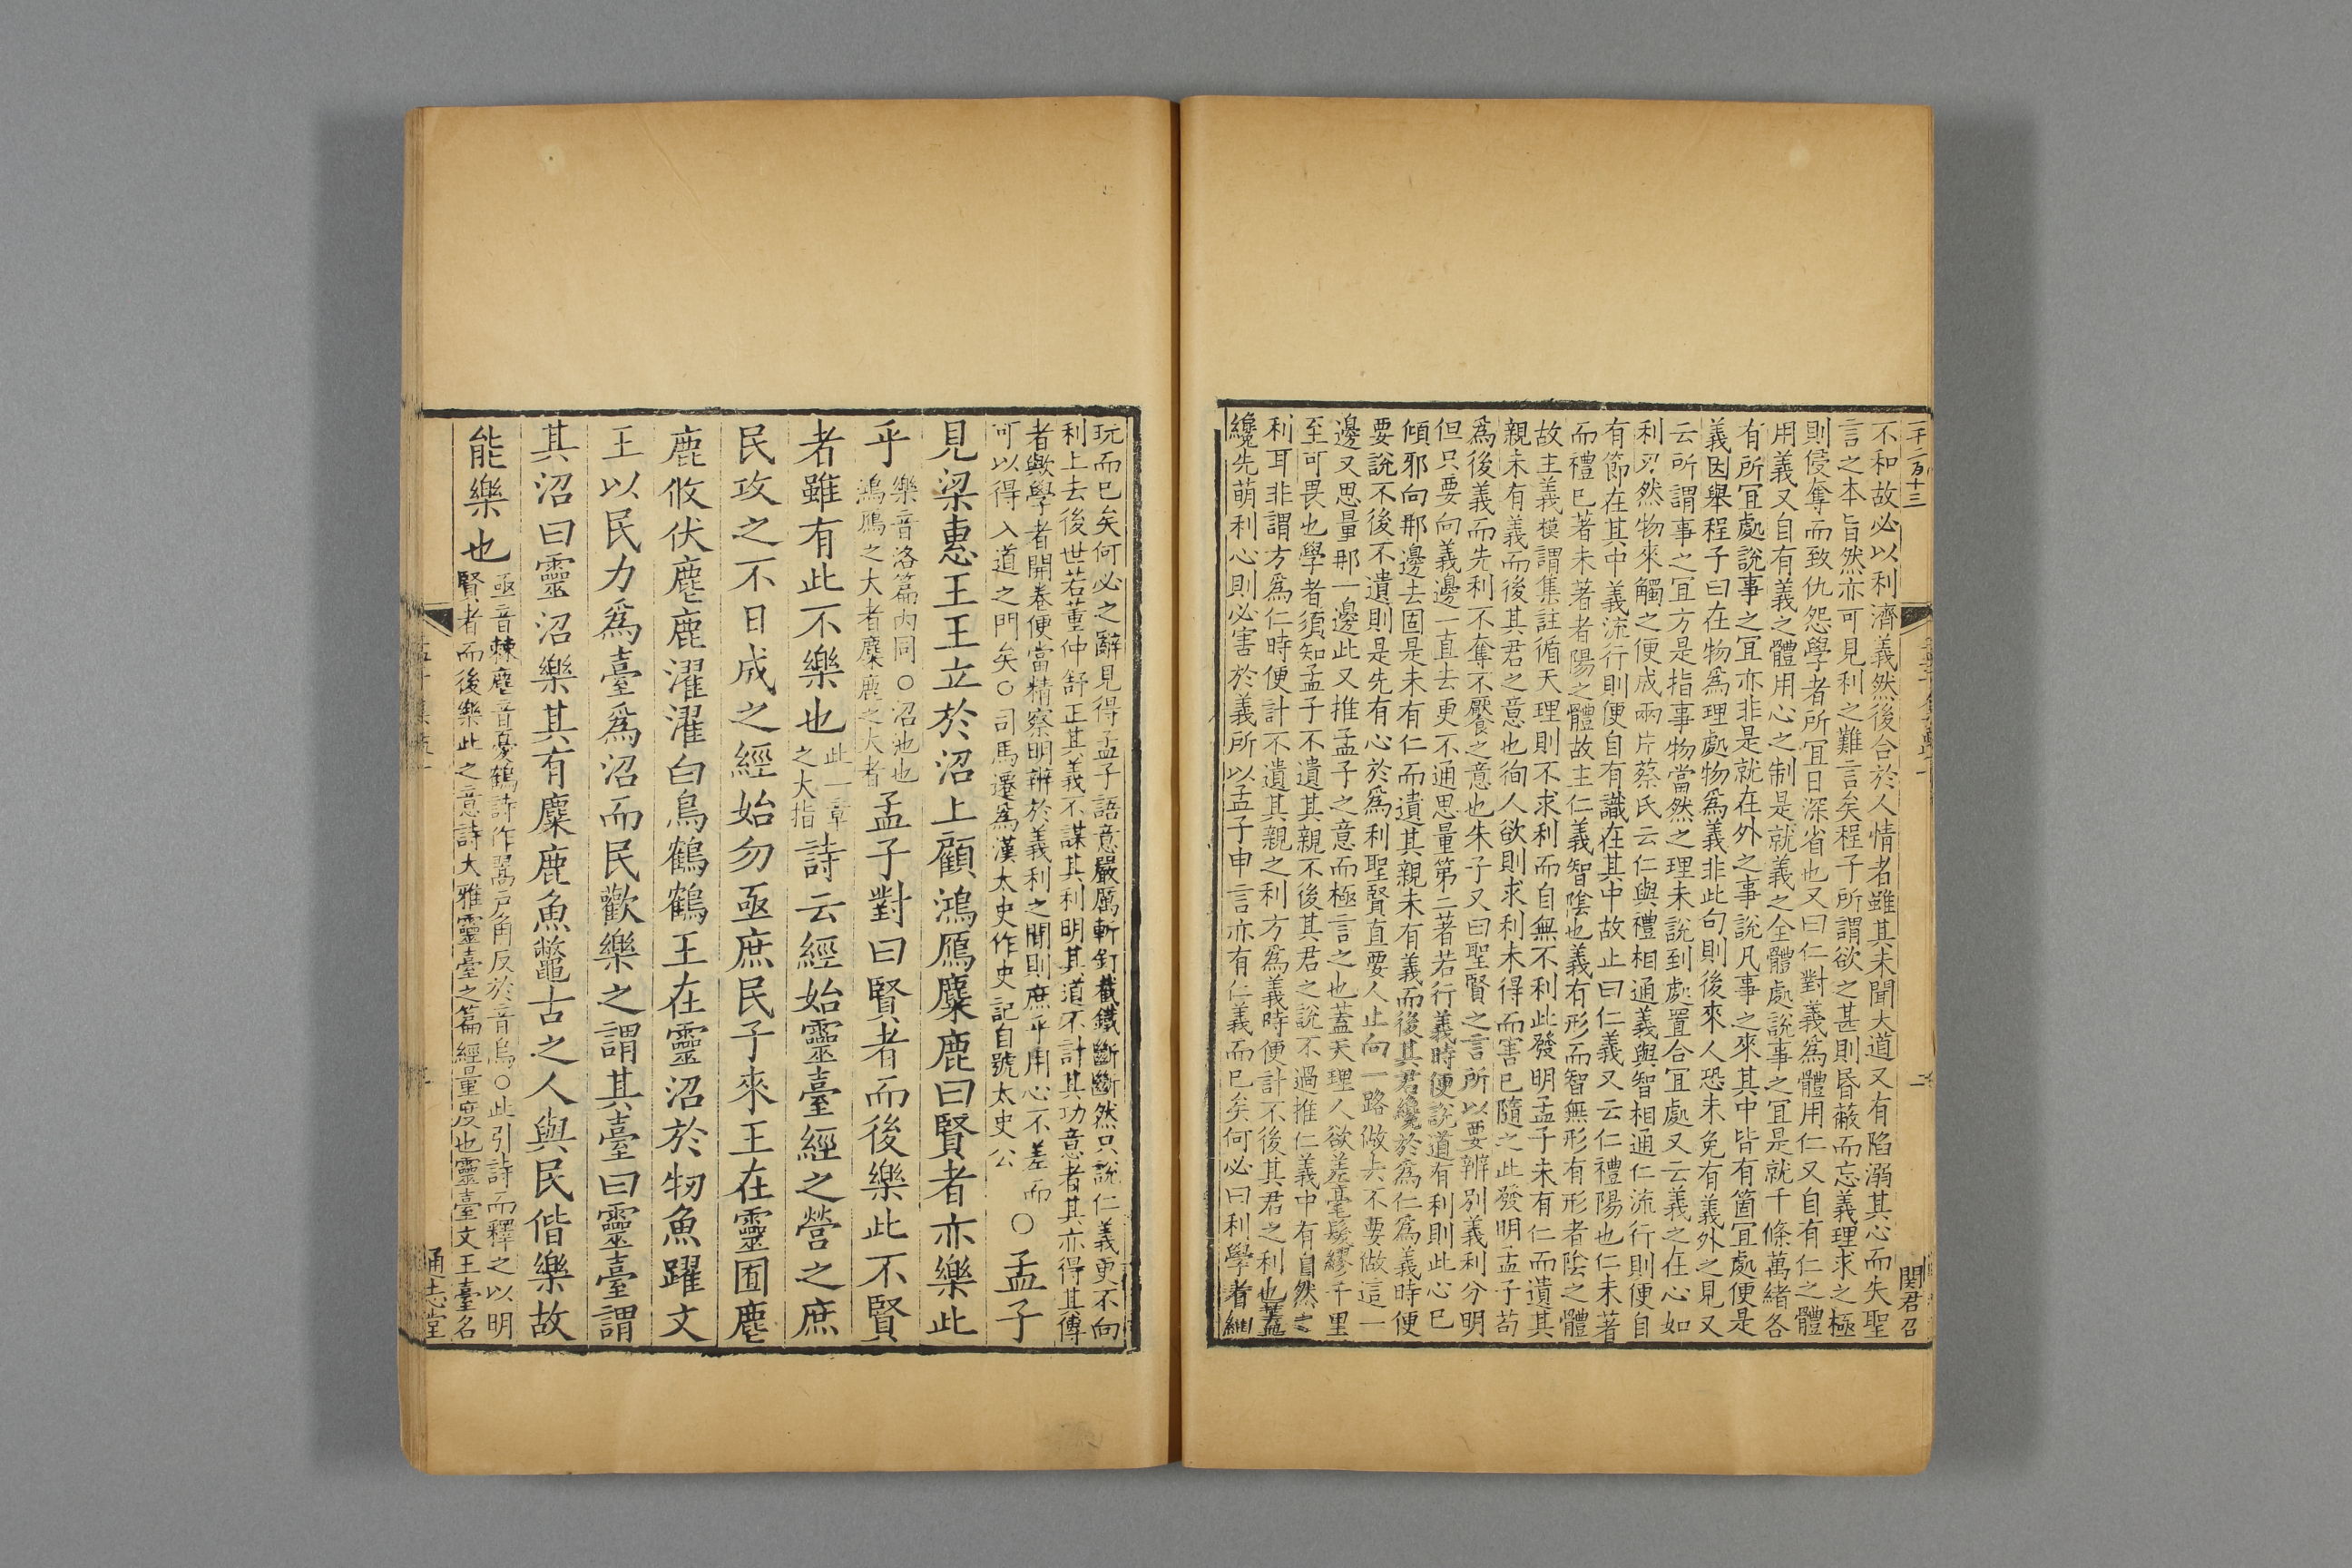 一千二百十三
関君召
不和故必以利濟義然後合於人情者雖其未聞大道又有陷溺其心而失聖
言之本旨然亦可見利之難言矣程子所謂欲之甚則昏蔽而忘義理求之極
則侵奪而致仇怨學者所宜日深省也又曰仁對義爲體用仁又自有仁之體
用義又自有義之體用心之制是就義之全體處說事之宜是就千條萬緒各
有所宜處說事之宜亦非是就在外之事說凡事之來其中皆有箇宜處便是
義因舉程子曰在物爲理處物爲義非此句則後來人恐未免有義外之見又
云所謂事之宜方是指事物當然之理未說到處置合宜處又云義之在心如
利刃然物來觸之便成兩片蔡氏云仁與禮相通義與智相通仁流行則便自
有節在其中義流行則便自有識在其中故止曰仁義又云仁禮陽也仁未著
而禮已著未著者陽之體故主仁義智陰也義有形而智無形有形者陰之體
故主義模謂集註循天理則不求利而自無不利此發明孟子未有仁而遺其
親未有義而後其君之意也徇人欲則求利未得而害已隨之此發明孟子苟
爲後義而先利不奪不饜之意也朱子又曰聖賢之言所以要辨別義利分明
但只要向義邊一直去更不通思量第二著若行義時便說道有利則此心已
傾邪向那邊去固是未有仁而遺其親未有義而後其君纔於爲仁爲義時便
要說不後不遺則是先有心於爲利聖賢直要人止向一路做去不要做這一
邊又思量那一邊此又推孟子之意而極言之也蓋天理人欲差毫髮繆千里
至可畏也學者須知孟子不遺其親不後其君之說不過推仁義中有自然之
利耳非謂方爲仁時便計不遺其親之利方爲義時便計不後其君之利也蓋
纔先萌利心則必害於義所以孟子申言亦有仁義而已矣何必曰利學者細
玩而已矣何必之辭見得孟子語意嚴厲斬釘截鐵斷斷然只說仁義更不向
利上去後世若董仲舒正其義不謀其利明其道不計其功意者其亦得其傳
者歟學者開卷便當精察明辨於義利之間則庶乎用心不差而
可以得入道之門矣○司馬遷爲漢太史作史記自號太史公
○孟子
見梁惠王王立於沼上顧鴻鴈麋鹿曰賢者亦樂此
乎樂音洛篇內同○沼池也
鴻鴈之大者麋鹿之大者孟子對曰賢者而後樂此不賢
者雖有此不樂也此一章
之大指詩云經始靈臺經之營之庶
民攻之不日成之經始勿亟庶民子來王在靈囿麀
鹿攸伏麀鹿濯濯白鳥鶴鶴王在靈沼於牣魚躍文
王以民力爲臺爲沼而民歡樂之謂其臺曰靈臺謂
其沼曰靈沼樂其有麋鹿魚鼈古之人與民偕樂故
能樂也亟音棘麀音憂鶴詩作翯戶角反於音烏○此引詩而釋之以明
賢者而後樂此之意詩大雅靈臺之篇經量度也靈臺文王臺名
通志堂